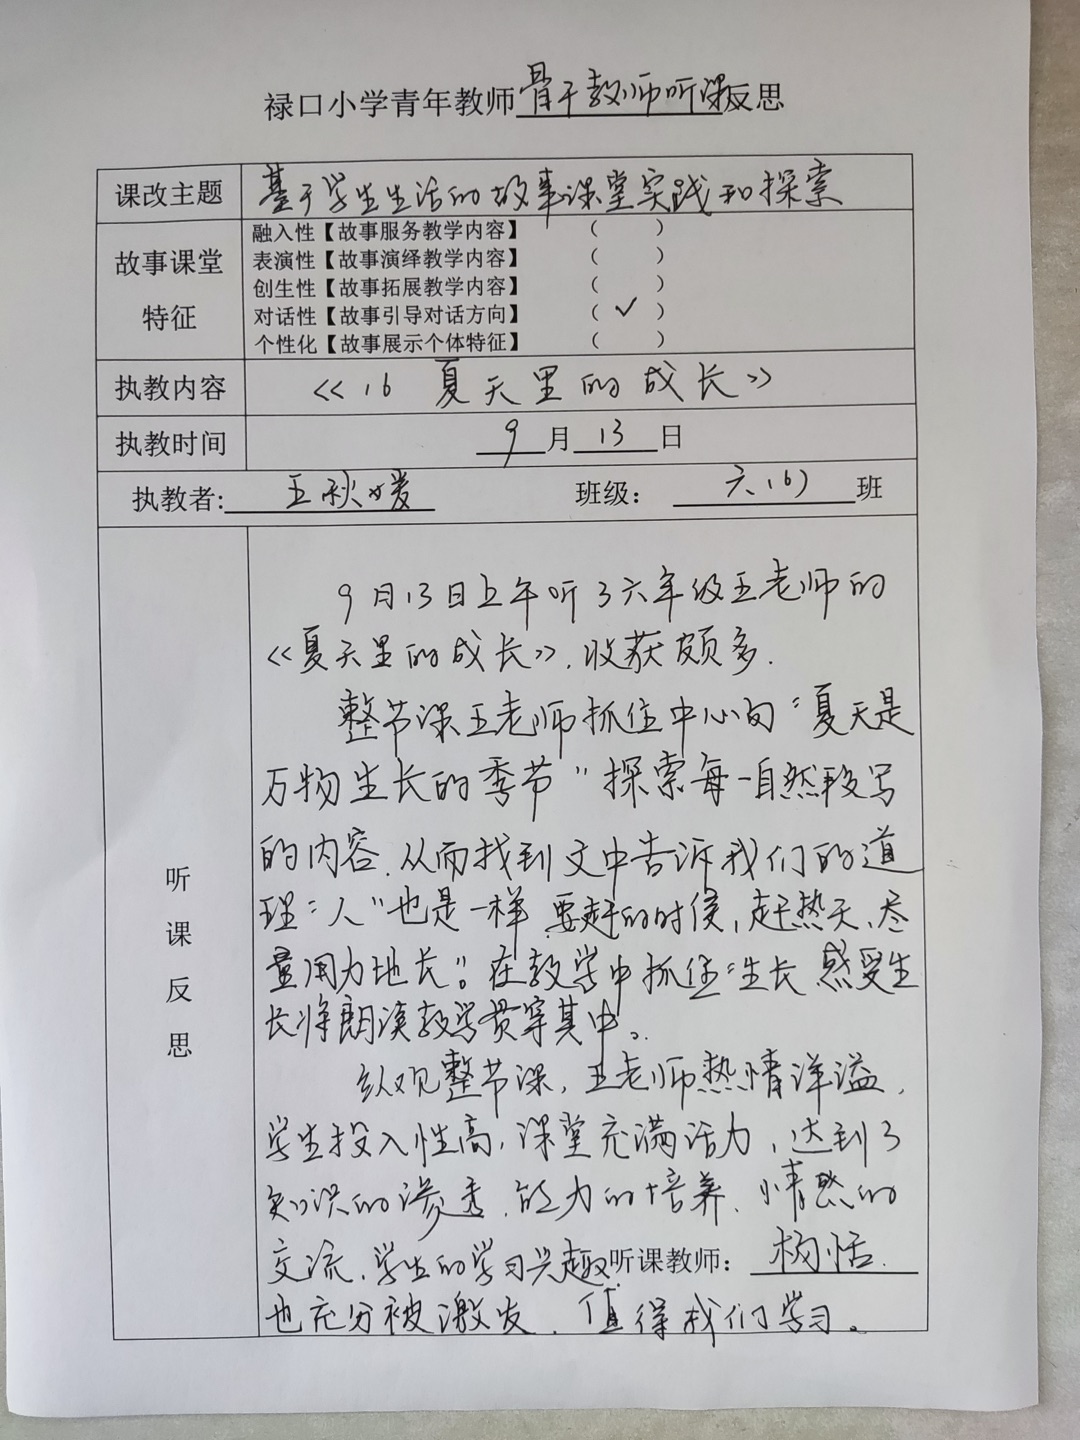 禄口小学青年教师骨干教师听课反思
课改主题 基于学生生活的故事课堂实践和探索
故事课堂
特征
融入性【故事服务教学内容】 （ ）
表演性【故事演绎教学内容】 （ ）
创生性【故事拓展教学内容】 （ ）
对话性【故事引导对话方向】 （ ✓ ）
个性化【故事展示个体特征】 （ ）
执教内容 《16 夏天里的成长》
执教时间 9月13日
执教者: 王秋媛 班级： 六（6）班
听
课
反
思
9月13日上午听了六年级王老师的
《夏天里的成长》，收获颇多.
整节课王老师抓住中心句“夏天是
万物生长的季节”探索每一自然段写
的内容，从而找到文中告诉我们的道
理“人”也是一样 要赶的时侯，赶热天、尽
量用力地长”。在教学中抓住“生长 感受生
长将朗读教学贯穿其中。
纵观整节课，王老师热情洋溢，
学生投入性高，课堂充满活力，达到了
知识的渗透、能力的培养、情感的
交流，学生的学习兴趣 听课教师： 杨恬
也充分被激发，值得我们学习。